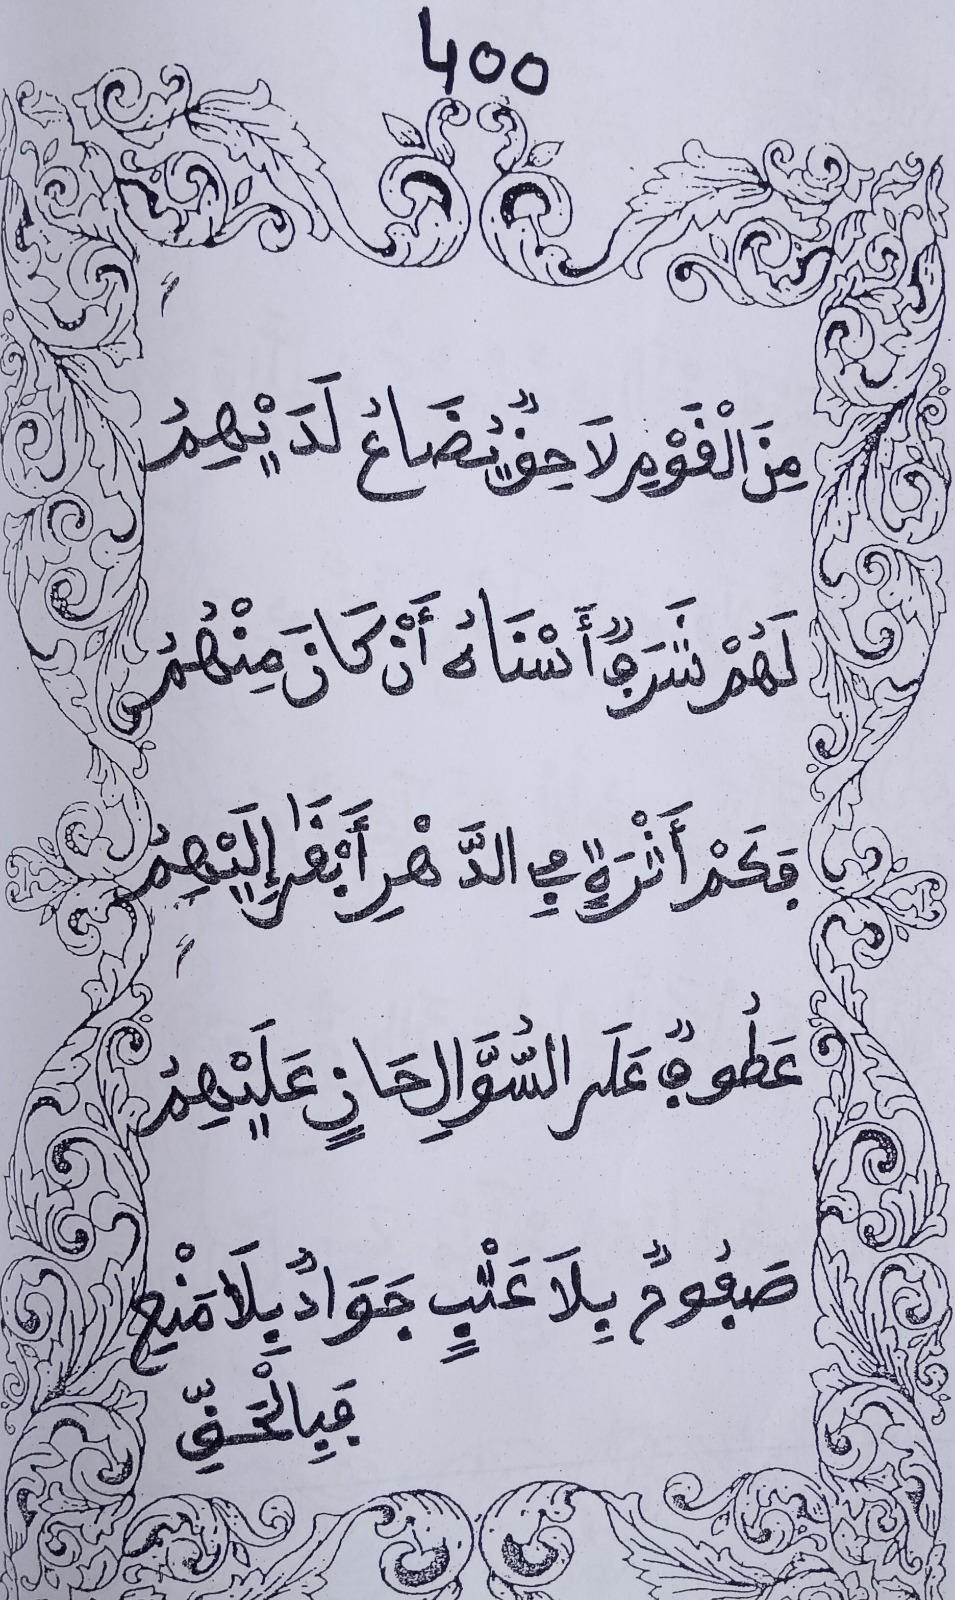 400
مِنَ الْقَوْمِ لَا حِقٌّ يُضَاعُ لَدَيْهِمُ
لَهُمْ شَرَفٌ أَسْنَاهُ أَنْ كَانَ مِنْهُمُ
فَكَمْ أَثْرَةٍ فِي الدَّهْرِ أَبْقَى إِلَيْهِمُ
عَطُوفٌ عَلَى السُّوَّالِ حَانٍ عَلَيْهِمُ
صَفُوحٌ بِلَا عَتْبٍ جَوَادٌ بِلَا مَنْعِ
فَبِالْحَقِّ